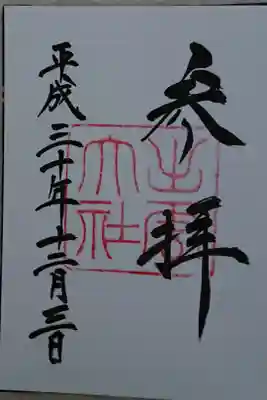 参拝
出雲大社
平成三十年十二月三日